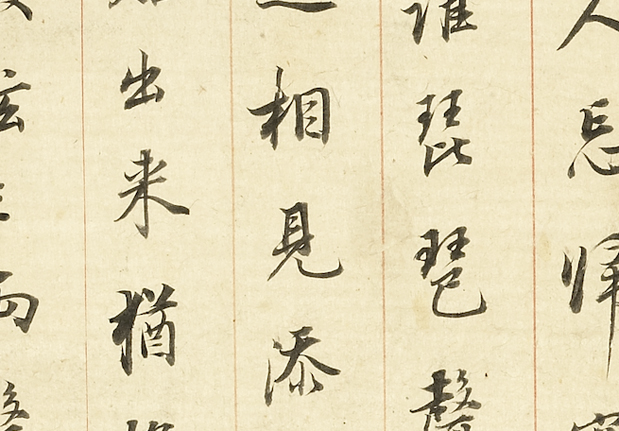 人忘帰
誰琵琶聲
相見添
出来猶
絃三両聲